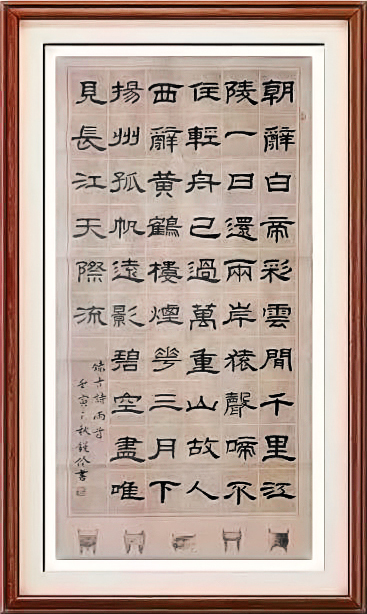 朝辭白帝彩雲閒千里江
陵一日還兩岸猿聲啼不
住輕舟已過萬重山故人
西辭黃鶴樓煙華三月下
揚州孤帆遠影碧空盡唯
見長江天際流
錄古詩兩首
壬寅之秋書